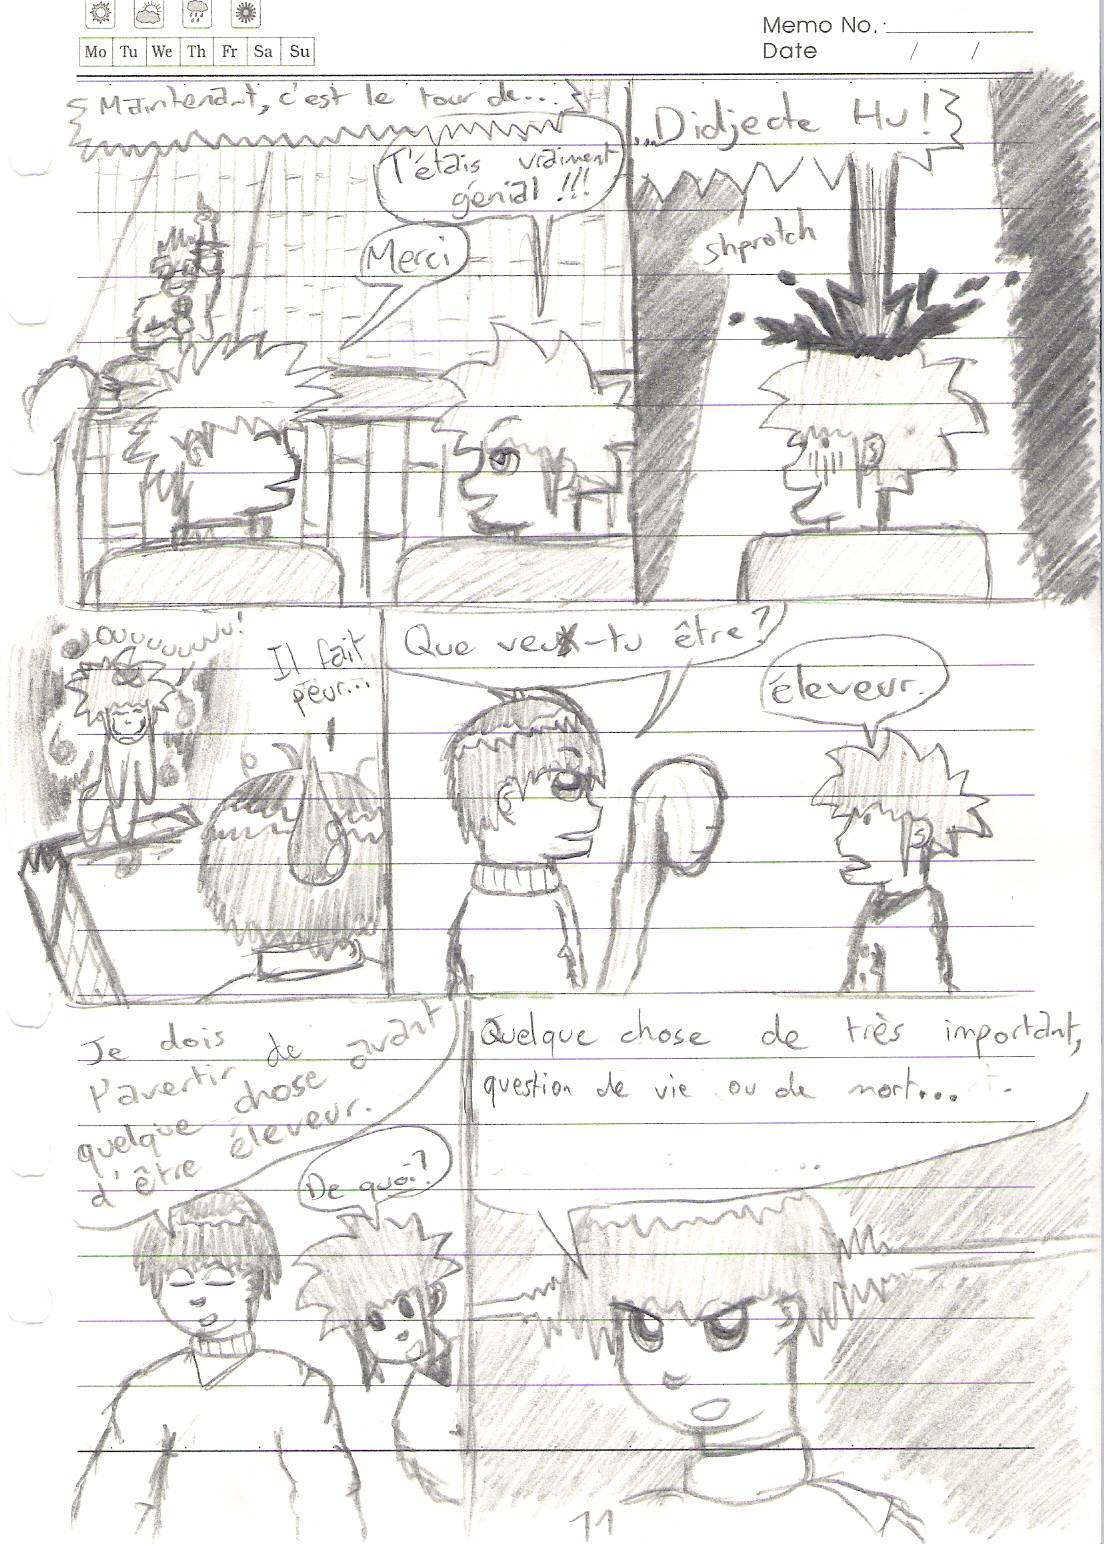 Memo No.:
Mo Tu We Th Fr Sa Su
Date / /
Maintenant, c'est le tour de...
T'étais vraiment
génial !!!
Merci
...Didjecte Hu!
shprotch
ouuuuuuu!
Il fait
peur...
Que veux-tu être?
éleveur.
Je dois
t'avertir de
quelque chose avant
d'être éleveur.
De quoi?
Quelque chose de très important,
question de vie ou de mort...
11